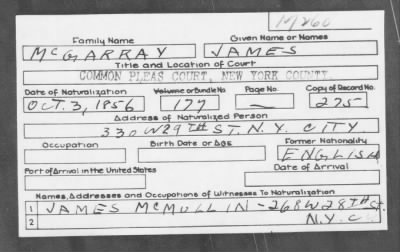 M260
Family Name Given Name or Names
McGARRAY JAMES
Title and Location of Court
COMMON PLEAS COURT, NEW YORK COUNTY
Date of Naturalization Volume or Bundle No. Page No. Copy of Record No.
OCT. 3, 1856 177 — 275
Address of Naturalized Person
330 W 29TH ST. N.Y. CITY.
Occupation Birth Date or Age Former Nationality
ENGLISH
Port of Arrival in the United States Date of Arrival
Names, Addresses and Occupations of Witnesses To Naturalization
1 JAMES McMULLIN - 268 W 28TH St.
2 N.Y.C